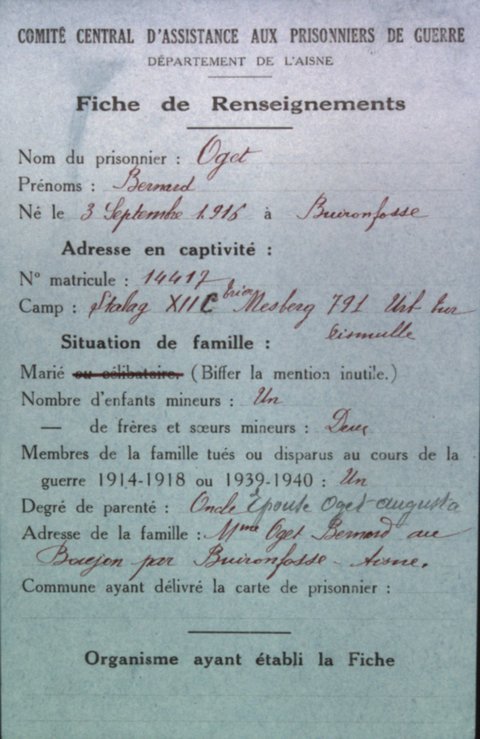 COMITÉ CENTRAL D'ASSISTANCE AUX PRISONNIERS DE GUERRE
DÉPARTEMENT DE L'AISNE
Fiche de Renseignements
Nom du prisonnier : Oget
Prénoms : Bernard
Né le 3 Septembre 1916 à Buironfosse
Adresse en captivité :
N° matricule : 14417
Camp : Stalag XII C Mesberg 791
Situation de famille :
Marié ou célibataire. (Biffer la mention inutile.)
Nombre d'enfants mineurs : Un
— de frères et sœurs mineurs : Deux
Membres de la famille tués ou disparus au cours de la
guerre 1914-1918 ou 1939-1940 : Un
Degré de parenté : Oncle Epouse Oget augusta
Adresse de la famille : Mme Oget Bernard au
par Buironfosse - Aisne.
Commune ayant délivré la carte de prisonnier :
Organisme ayant établi la Fiche